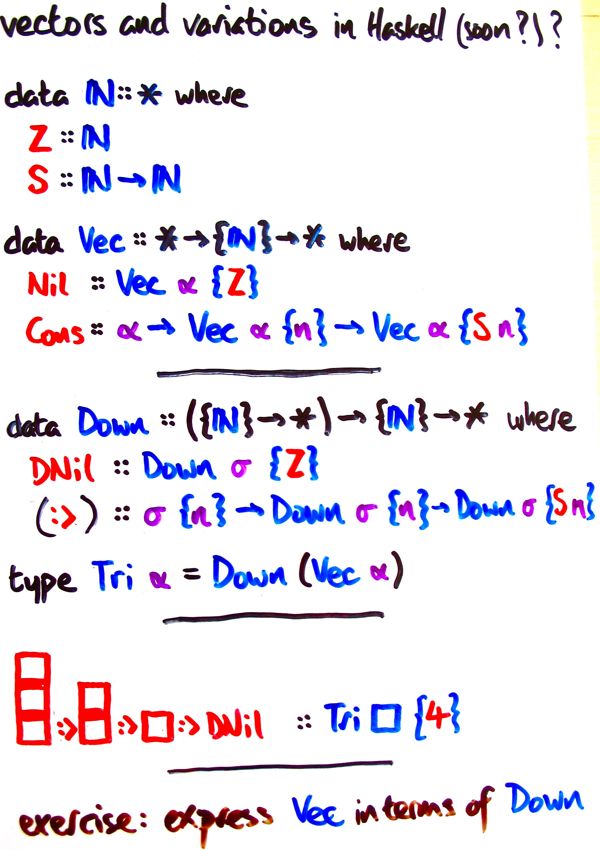 vectors and variations in Haskell (soon?)?
data ℕ :: * where
Z :: ℕ
S :: ℕ → ℕ
data Vec :: * → {ℕ} → * where
Nil :: Vec α {Z}
Cons :: α → Vec α {n} → Vec α {S n}
data Down :: ({ℕ} → *) → {ℕ} → * where
DNil :: Down σ {Z}
(:>) :: σ {n} → Down σ {n} → Down σ {S n}
type Tri α = Down (Vec α)
:> :> □ :> DNil :: Tri □ {4}
exercise: express Vec in terms of Down